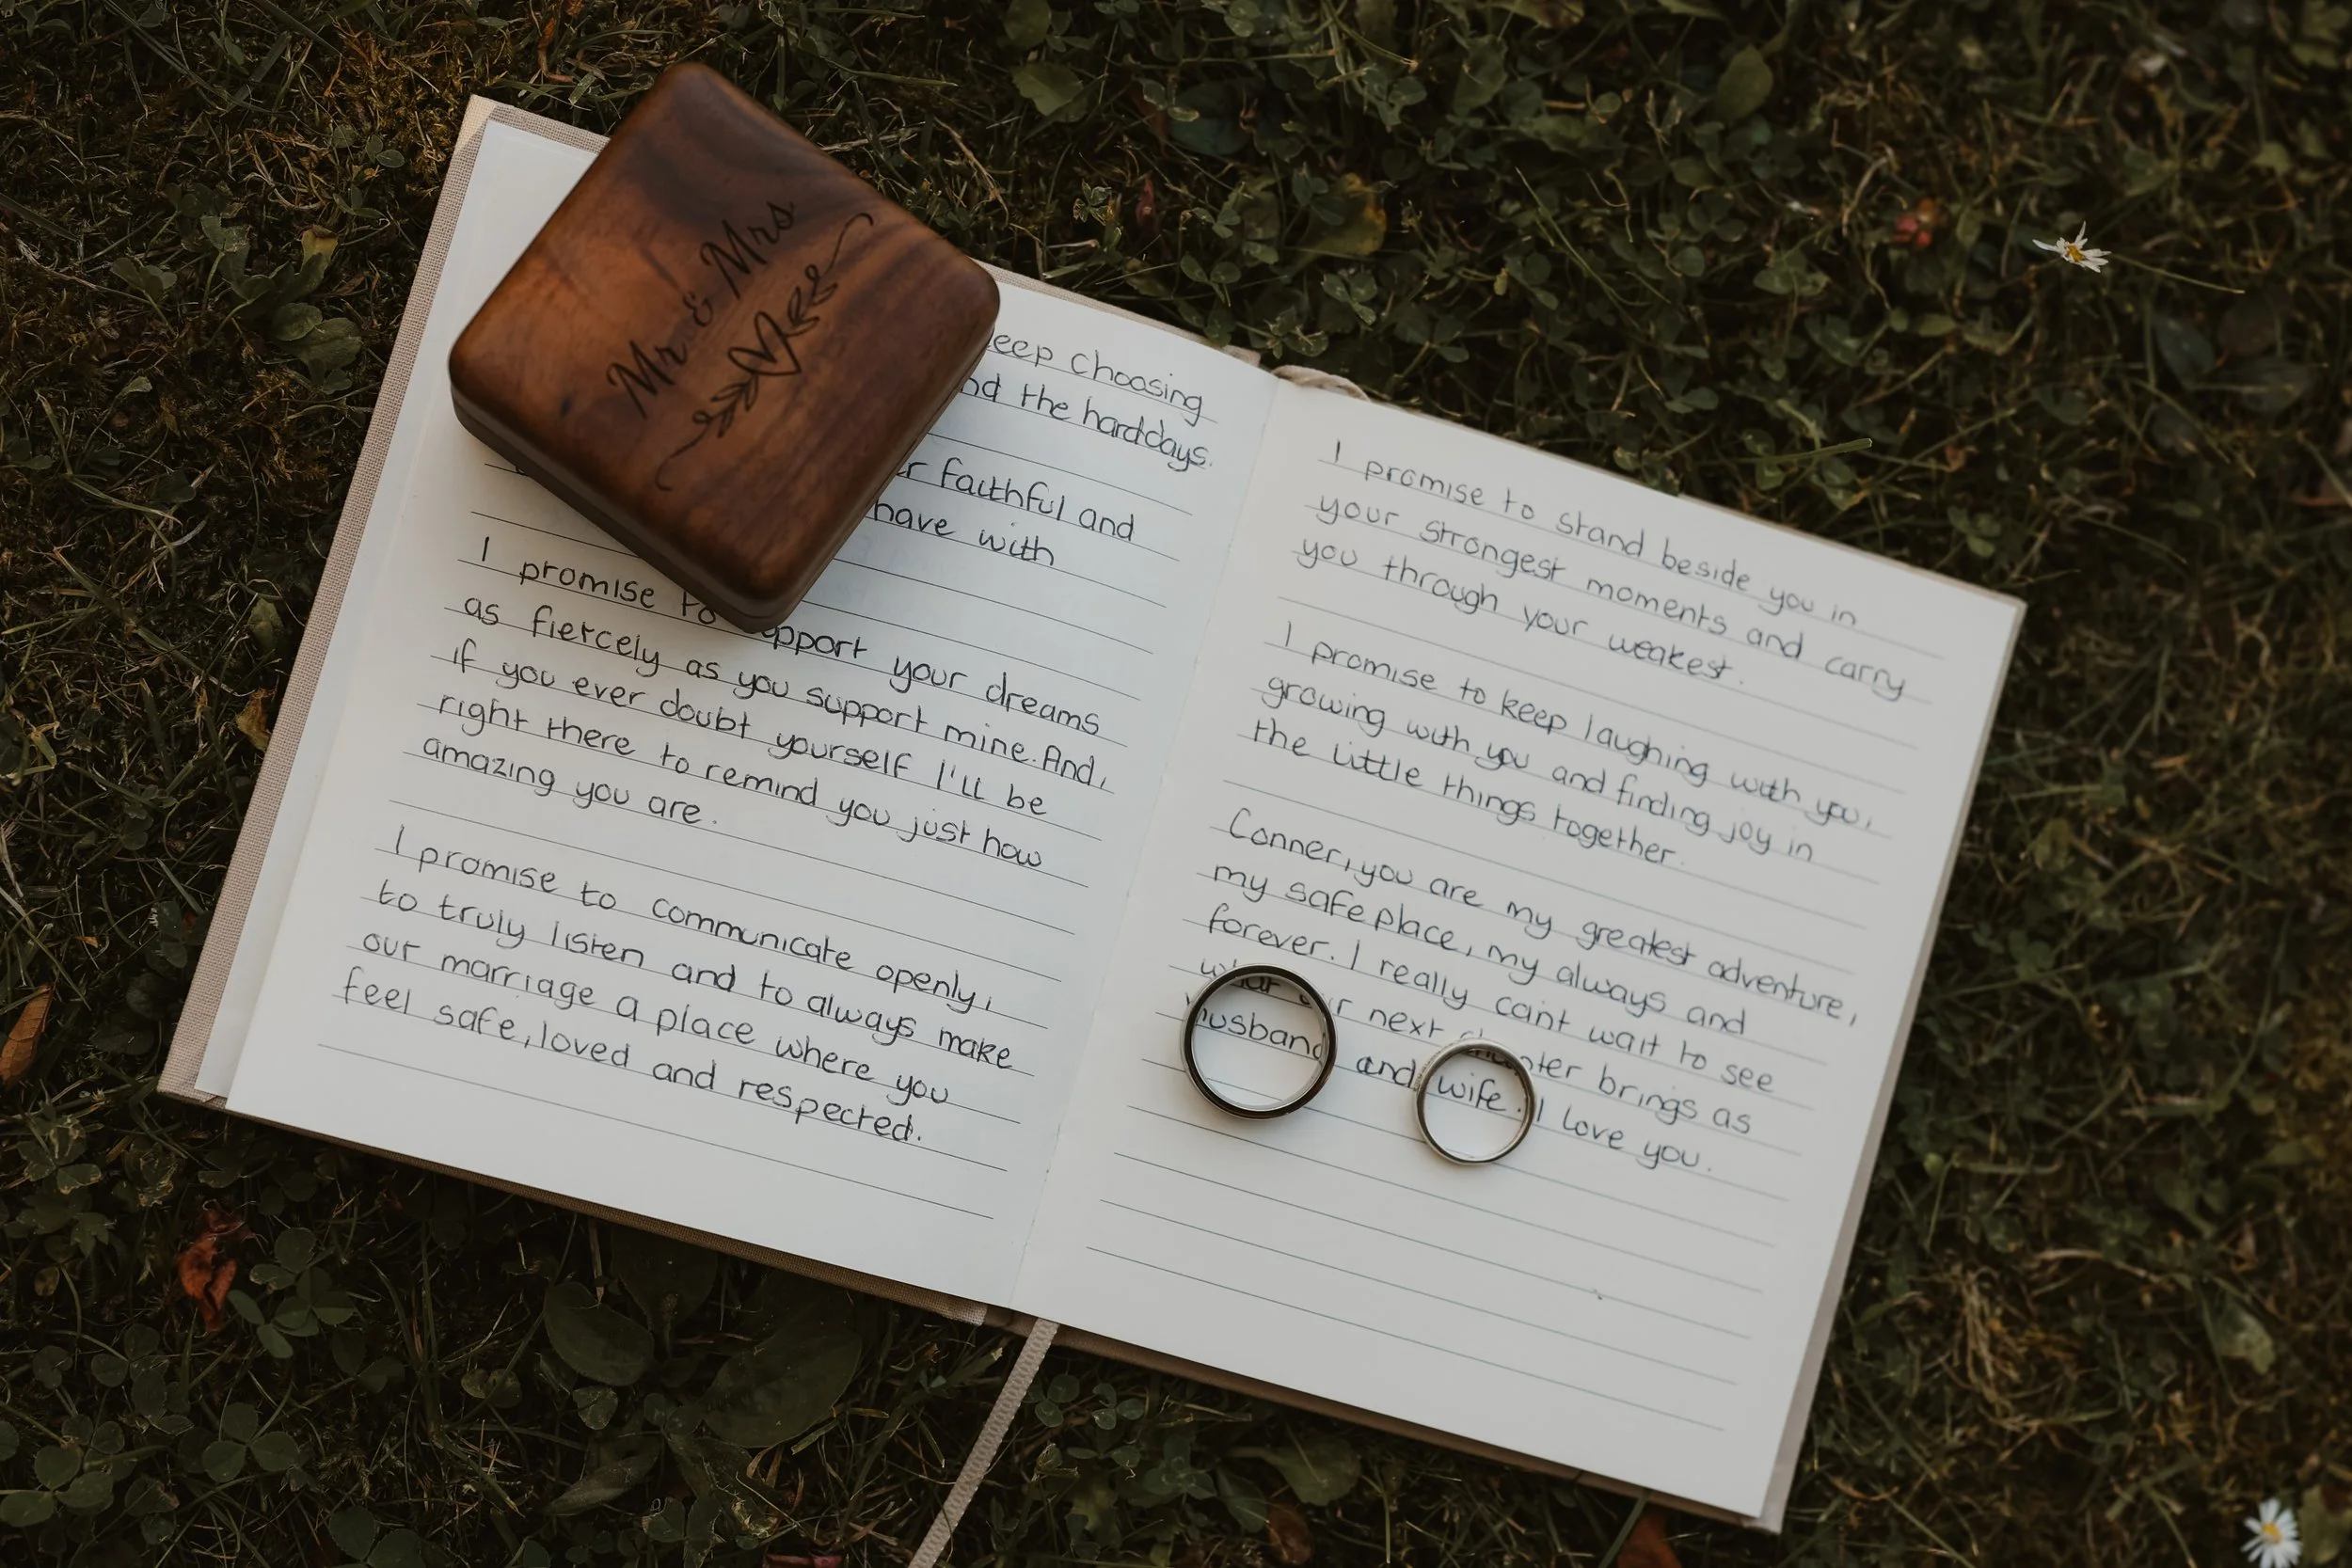 Mr & Mrs
Choosing
the hard days.
faithful and
have with
I promise to support your dreams
as fiercely as you support mine. And,
if you ever doubt yourself I'll be
right there to remind you just how
amazing you are.
I promise to communicate openly,
to truly listen and to always make
our marriage a place where you
feel safe, loved and respected.
I promise to stand beside you in
your strongest moments and carry
you through your weakest.
I promise to keep laughing with you,
growing with you and finding joy in
the little things together.
Conner, you are my greatest adventure,
my safe place, my always and
forever. I really cain't wait to see
what our next chapter brings as
husband and wife. I love you.